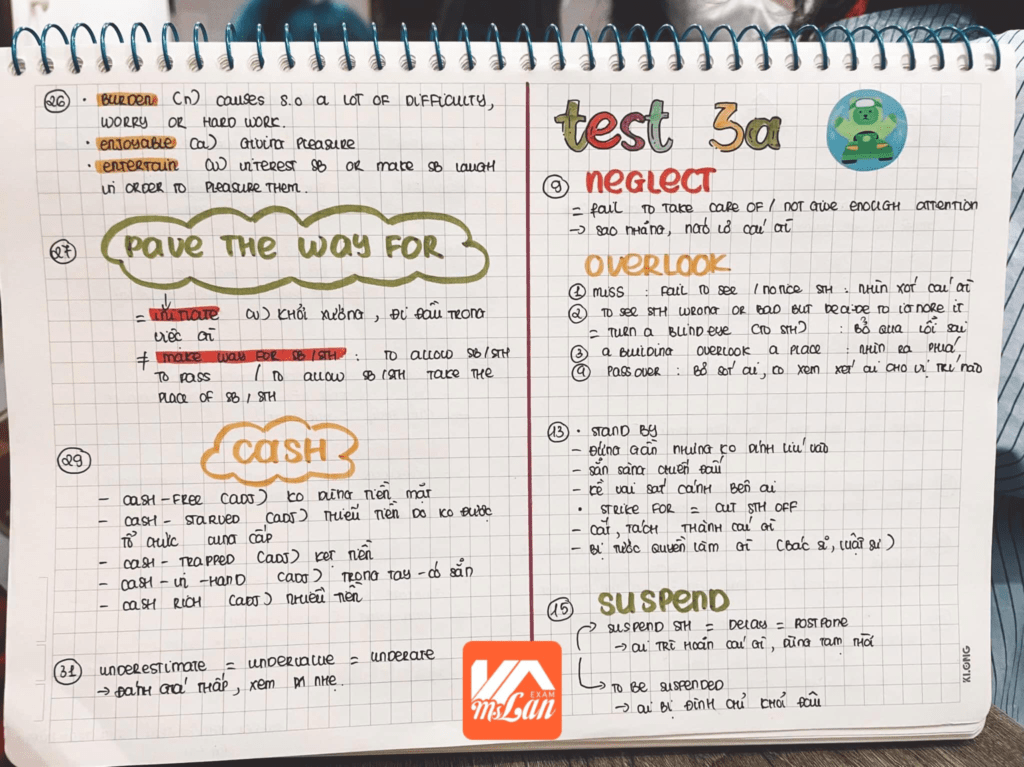 26 • BURDEN (n) CAUSES S.O A LOT OF DIFFICULTY,
WORRY OR HARD WORK.
• ENJOYABLE (a) GIVING PLEASURE
• ENTERTAIN (v) INTEREST SB OR MAKE SB LAUGH
IN ORDER TO PLEASURE THEM.
27 PAVE THE WAY FOR
= INITIATE (v) KHỞI XƯỚNG, ĐI ĐẦU TRONG
VIỆC GÌ
≠ MAKE WAY FOR SB/STH : TO ALLOW SB/STH
TO PASS / TO ALLOW SB/STH TAKE THE
PLACE OF SB/STH
29 CASH
- CASH-FREE (ADJ) KO DÙNG TIỀN MẶT
- CASH-STARVED (ADJ) THIẾU TIỀN DO KO ĐƯỢC
TỔ CHỨC CUNG CẤP
- CASH-TRAPPED (ADJ) KẸT TIỀN
- CASH-IN-HAND (ADJ) TRONG TAY - CÓ SẴN
- CASH RICH (ADJ) NHIỀU TIỀN
31 UNDERESTIMATE = UNDERVALUE = UNDERATE
→ ĐÁNH GIÁ THẤP, XEM NHẸ.
test 3a
9 NEGLECT
= FAIL TO TAKE CARE OF / NOT GIVE ENOUGH ATTENTION
→ SAO NHÃNG, NGÓ LƠ CÁI GÌ
OVERLOOK
1 MISS : FAIL TO SEE / NOTICE STH : NHÌN XÓT CÁI GÌ
2 TO SEE STH WRONG OR BAD BUT DECIDE TO IGNORE IT
= TURN A BLIND EYE (TO STH) : BỎ QUA LỖI SAI
3 A BUILDING OVERLOOK A PLACE : NHÌN RA PHÍA
4 PASS OVER : BỎ SÓT AI, KO XEM XÉT AI CHO VỊ TRÍ NÀO
13 • STAND BY
- ĐỨNG GẦN NHƯNG KO DÍNH LÍU VÀO
- SẴN SÀNG CHIẾN ĐẤU
- KỀ VAI SÁT CÁNH BÊN AI
• STRIKE FOR = CUT STH OFF
- CẮT, TÁCH THÀNH CÁI GÌ
- BỊ TƯỚC QUYỀN LÀM GÌ (BÁC SĨ, LUẬT SƯ)
15 SUSPEND
SUSPEND STH = DELAY = POSTPONE
→ AI TRÌ HOÃN CÁI GÌ, DỪNG TẠM THỜI
TO BE SUSPENDED
→ AI BỊ ĐÌNH CHỈ KHỎI ĐÂU
XLONG
EXAM
MsLan